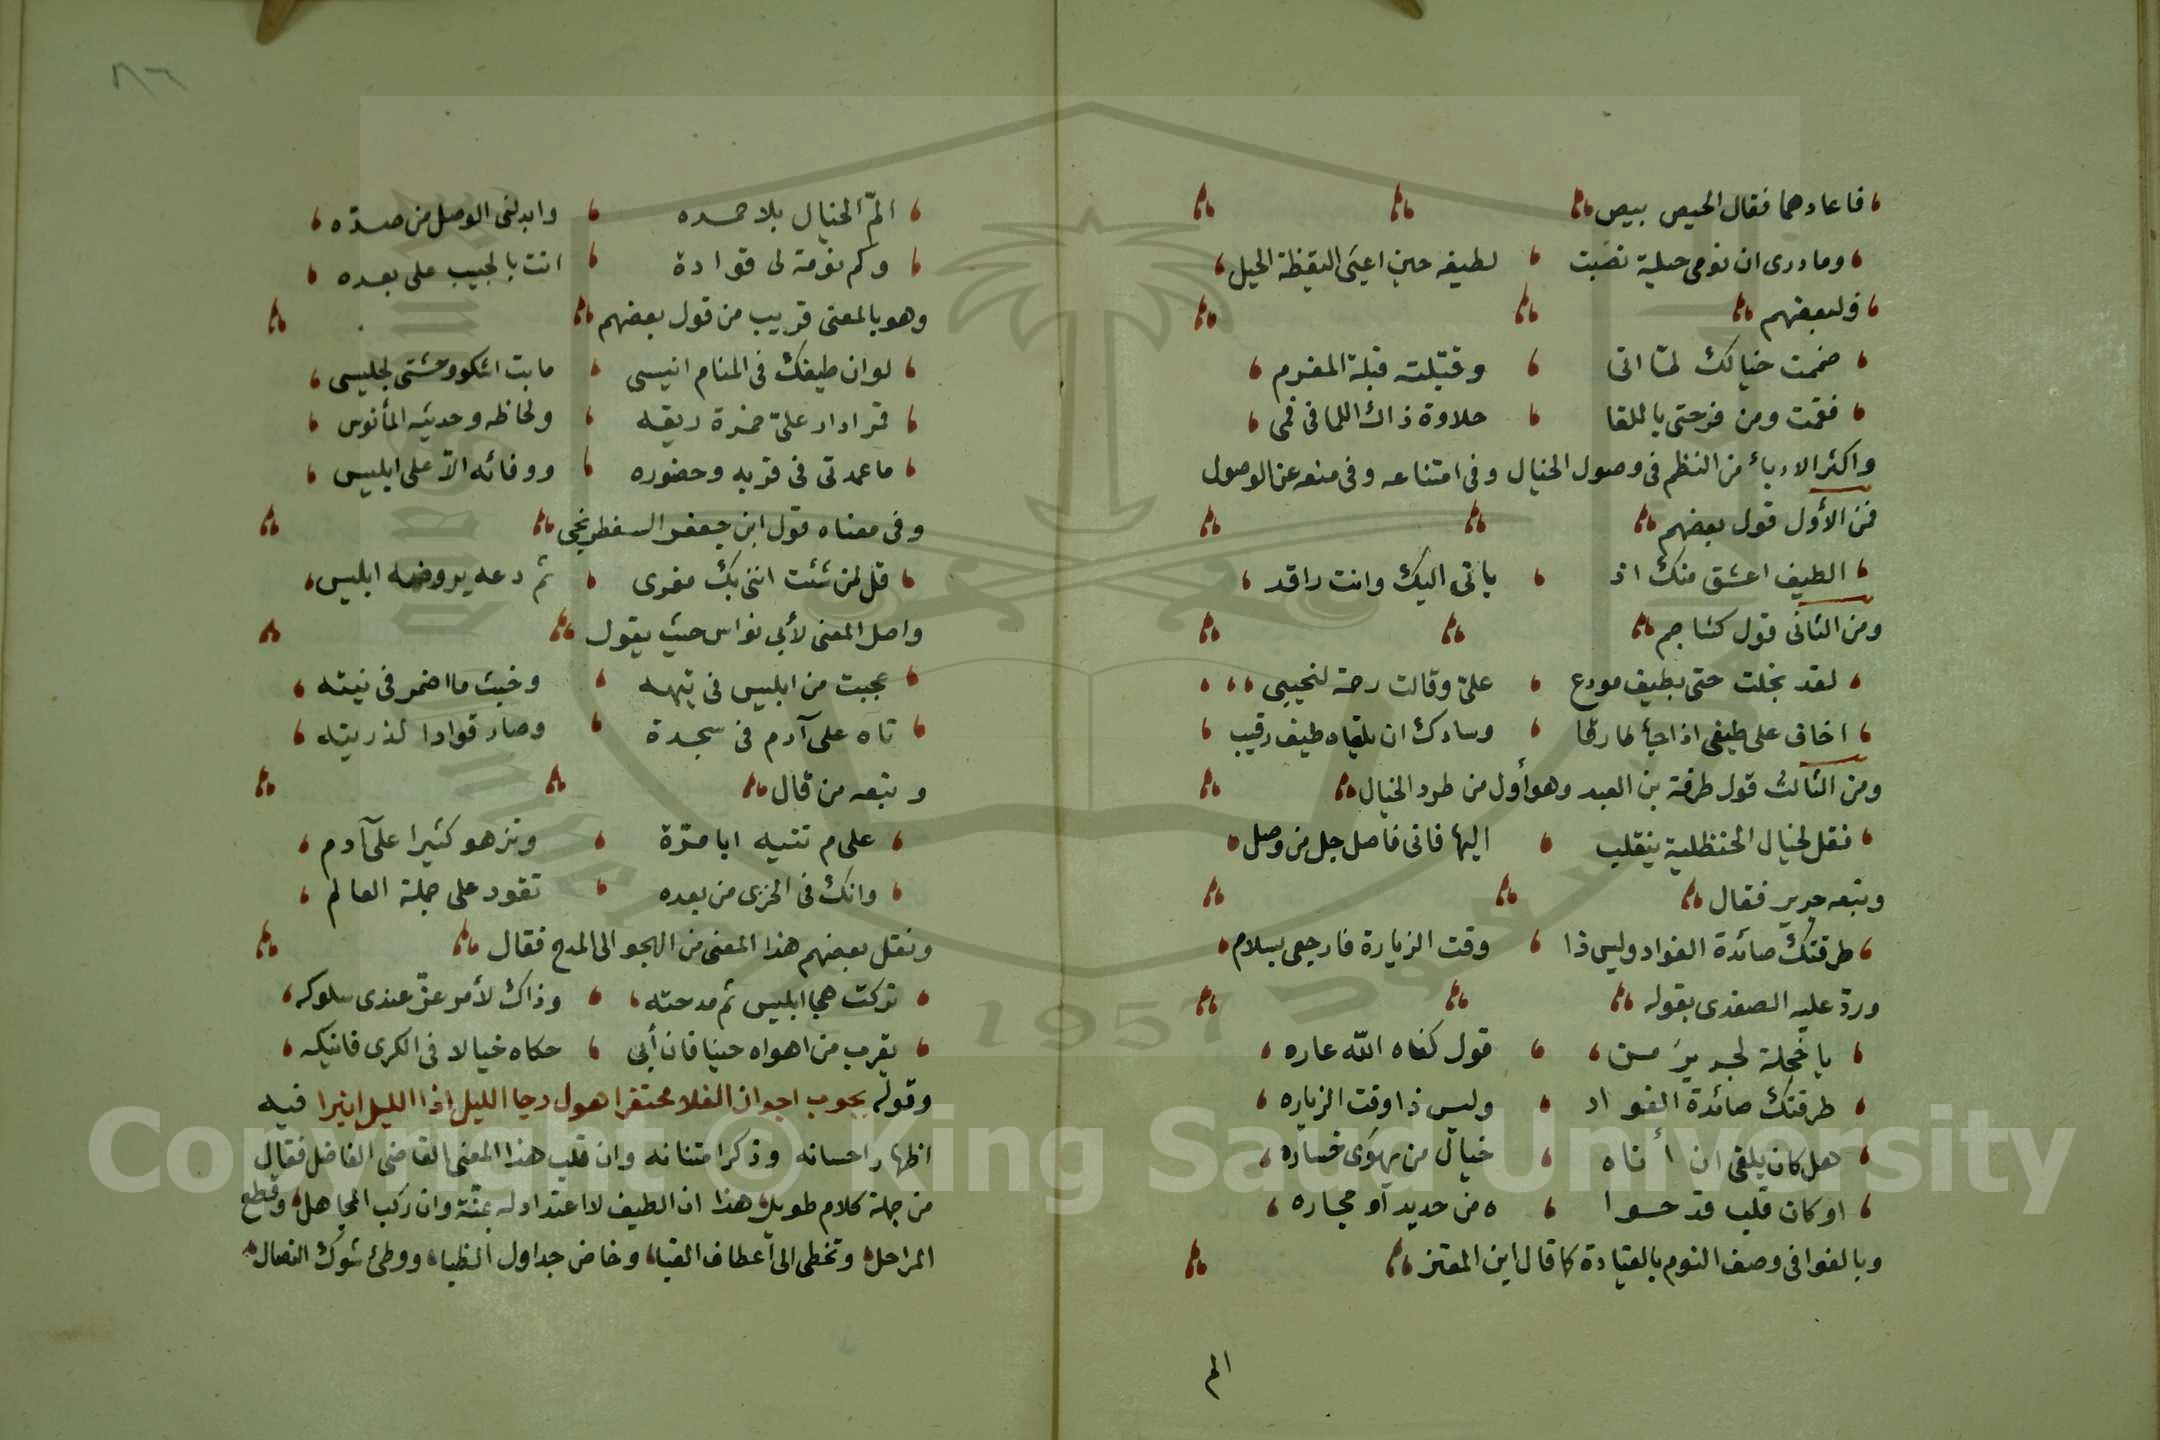 فاعادهما فقال الحيص بيص
وما درى ان نومى حيلة نصبت لطيفه حين اعيى اليقظة الحيل
ولبعضهم
ضممت خيالك لما اتى وقبلته قبلة المغرم
فقمت ومن فرحتى باللقا حلاوة ذاك اللما فى فمى
واكثر الادباء من النظم فى وصول الخيال وفى امتناعه وفى منعه عن الوصول
فمن الأول قول بعضهم
الطيف اعشق منك اذ ياتى اليك وانت راقد
ومن الثانى قول كشاجم
لقد بخلت حتى بطيف مودع على وقالت رحمة لنحيبى
اخاف على طيفى اذا جاء طارقا وسادك ان يلقاه طيف رقيب
ومن الثالث قول طرفة بن العبد وهو أول من طرد الخيال
فقل لخيال الحنظلية ينقلب اليها فانى فاصل حبل من وصل
وتبعه جرير فقال
طرقتك صائدة الفواد وليس ذا وقت الزيارة فارجعى بسلام
ورد عليه الصفدى بقوله
يا خجلة لجرير من قول كفاه الله عاره
طرقتك صائدة الفواد وليس ذا وقت الزياره
هل كان يلقى ان أتاه خيال من يهوى خساره
او كان قلب قد حسوا ه من حديد أو حجاره
وبالغوا فى وصف النوم بالقيادة كما قال ابن المعتز
الم
الم الخيال بلا حمده وابدلنى الوصل من صده
وكم نومة لى قوادة اتت بالحبيب على بعده
وهو بالمعنى قريب من قول بعضهم
لو ان طيفك فى المنام انيسى ما بت اشكو وحشتى لجليسى
قمر ادار على خمرة ريقه ولحاظه وحديثه المأنوس
ما عمدتى فى قربه وحضوره ووفائه الا على ابليس
وفى معناه قول ابن جعفر السفطرنجى
قل لمن شئت اننى بك مغرى ثم دعه يروضه ابليس
واصل المعنى لأبى نواس حيث يقول
عجبت من ابليس فى تيهه وخبث ما اضمر فى نيته
تاه على آدم فى سجدة وصار قوادا لذريته
وتبعه من قال
على م تتيه ابا مرة وتزهو كثيرا على آدم
وانك فى الخزى من بعده تقود على جملة العالم
ونقل بعضهم هذا المعنى من الهجو الى المدح فقال
تركت هجا ابليس ثم مدحته وذاك لأمر عز عندى سلوكه
يقرب من اهواه حينا فان أبى حكاه خيالا فى الكرى فانيكه
وقوله يجوب اجواز الفلا محتقرا هول دجا الليل اذا الليل انبرا فيه
اظهار احسانه وذكر امتنانه وان قلب هذا المعنى القاضى الفاضل فقال
من جملة كلام طويل هذا ان الطيف لا اعتداد له بمنة وان ركب المجاهل وقطع
المراحل وتخطى الى أعطاف القبا وخاض جداول الظبا ووطئ شوك النصال